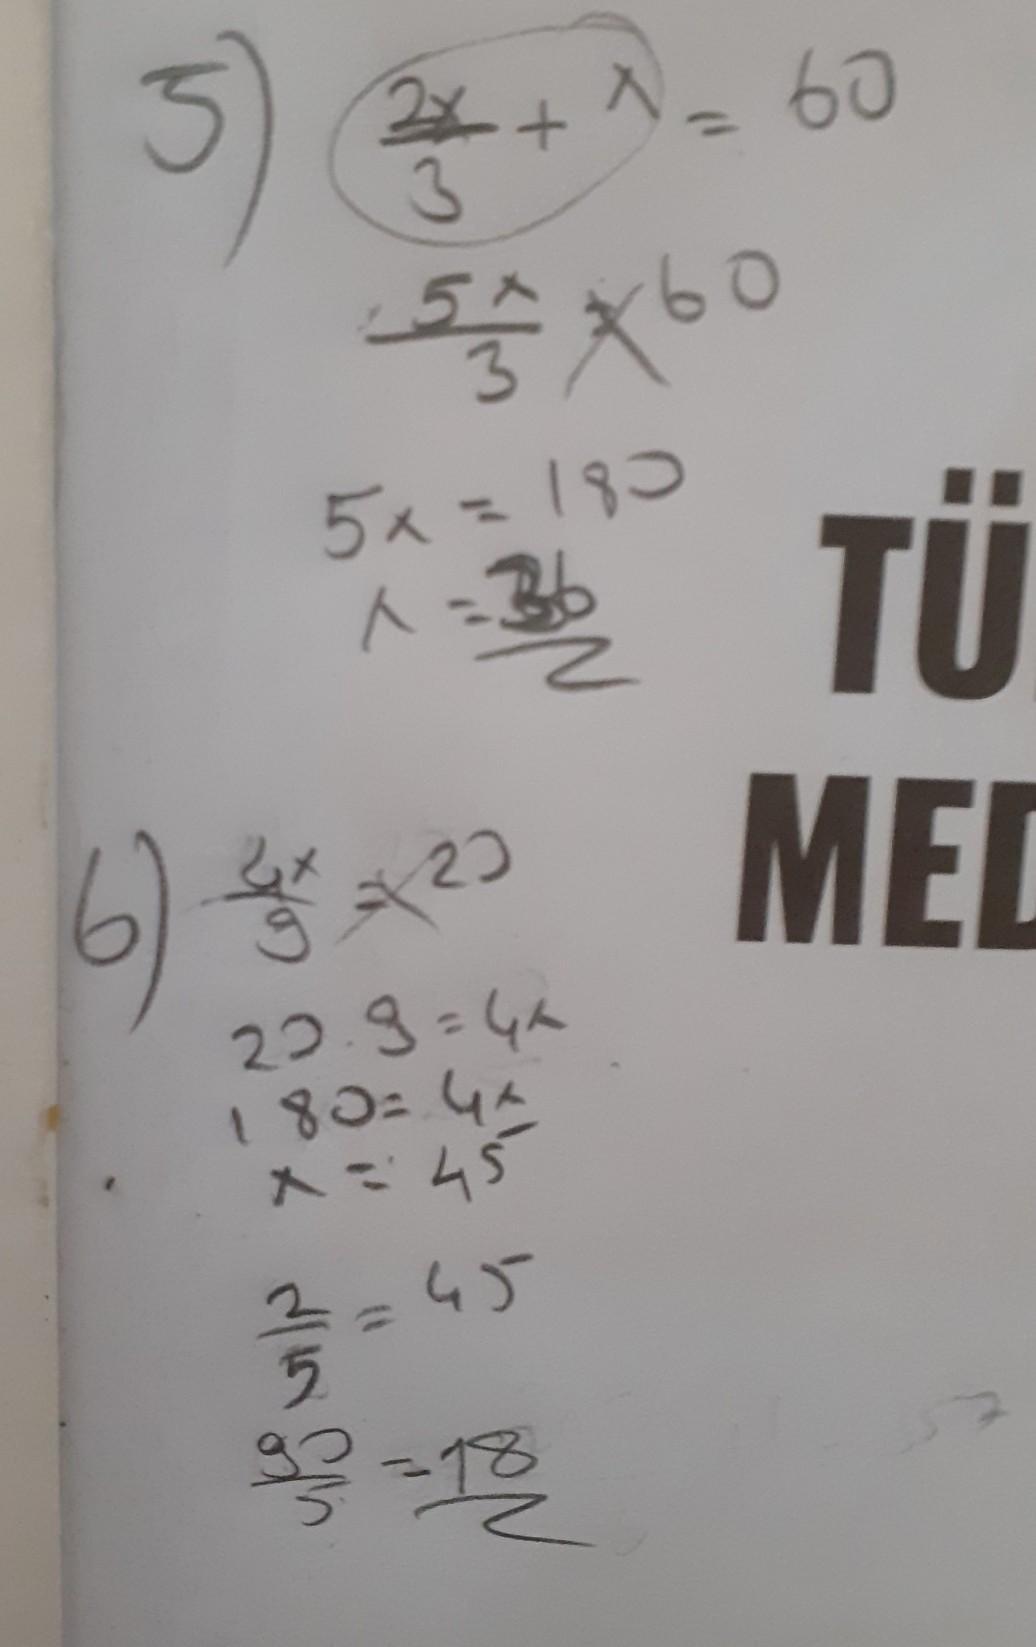 5) 2x/3 + x = 60
5x/3 = 60
5x = 180
x = 36
TÜ
MED
6) 4x/9 = 20
20.9=4x
180=4x
x = 45
2/5 = 45
90/5 = 18